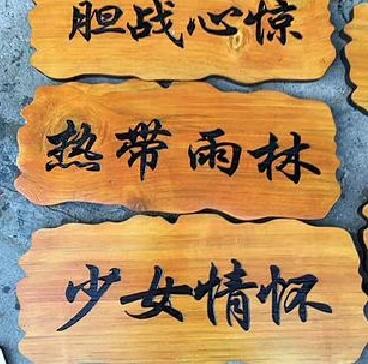 胆战心惊
热带雨林
少女情怀